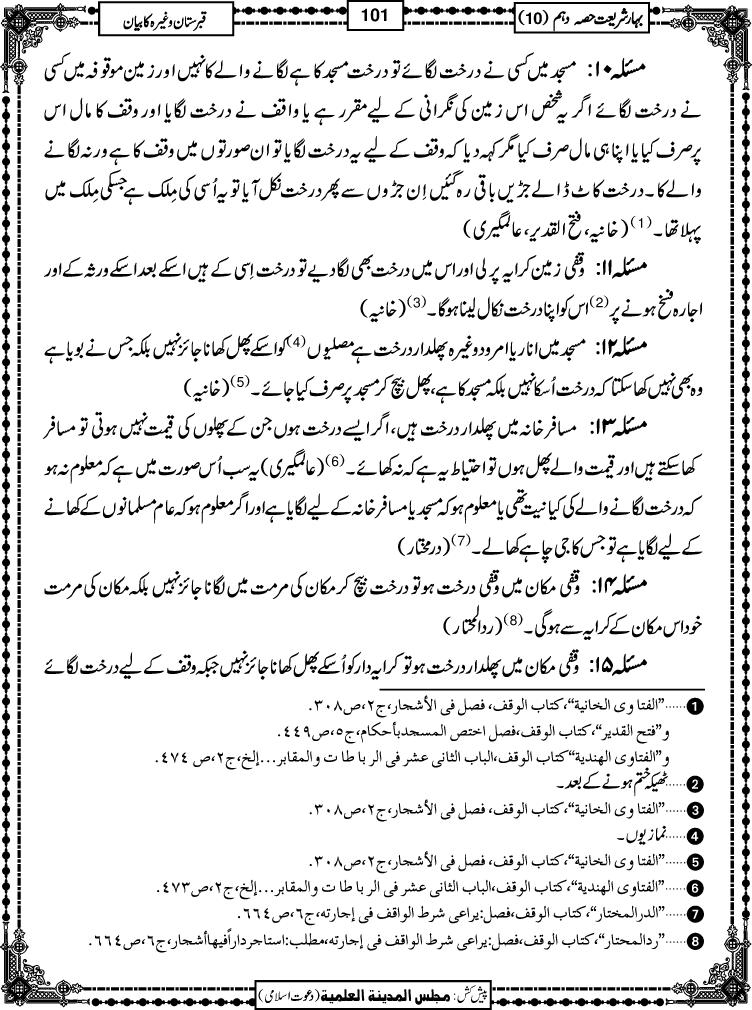 بہارشریعت حصہ دہم (10)
101
قبرستان وغیرہ کا بیان
مسئلہ ۱۰: مسجد میں کسی نے درخت لگائے تو درخت مسجد کا ہے لگانے والے کا نہیں اور زمین موقوفہ میں کسی
نے درخت لگائے اگر یہ شخص اس زمین کی نگرانی کے لیے مقرر ہے یا واقف نے درخت لگایا اور وقف کا مال اس
پر صرف کیا یا اپنا ہی مال صرف کیا مگر کہہ دیا کہ وقف کے لیے یہ درخت لگایا تو ان صورتوں میں وقف کا ہے ورنہ لگانے
والے کا۔ درخت کاٹ ڈالے جڑیں باقی رہ گئیں اِن جڑوں سے پھر درخت نکل آیا تو یہ اُسی کی مِلک ہے جسکی مِلک میں
پہلا تھا۔(1) (خانیہ، فتح القدیر، عالمگیری)
مسئلہ ۱۱: وقفی زمین کرایہ پر لی اور اس میں درخت بھی لگا دیے تو درخت اِسی کے ہیں اسکے بعد اسکے ورثہ کے اور
اجارہ فسخ ہونے پر(2) اس کو اپنا درخت نکال لینا ہوگا۔(3) (خانیہ)
مسئلہ ۱۲: مسجد میں انار یا امرود وغیرہ پھلدار درخت ہے مصلیوں(4) کو اسکے پھل کھانا جائز نہیں بلکہ جس نے بویا ہے
وہ بھی نہیں کھا سکتا کہ درخت اُسکا نہیں بلکہ مسجد کا ہے، پھل بیچ کر مسجد پر صرف کیا جائے۔(5) (خانیہ)
مسئلہ ۱۳: مسافر خانہ میں پھلدار درخت ہیں، اگر ایسے درخت ہوں جن کے پھلوں کی قیمت نہیں ہوتی تو مسافر
کھا سکتے ہیں اور قیمت والے پھل ہوں تو احتیاط یہ ہے کہ نہ کھائے۔(6) (عالمگیری) یہ سب اُس صورت میں ہے کہ معلوم نہ ہو
کہ درخت لگانے والے کی کیا نیت تھی یا معلوم ہو کہ مسجد یا مسافر خانہ کے لیے لگایا ہے اور اگر معلوم ہو کہ عام مسلمانوں کے کھانے
کے لیے لگایا ہے تو جس کا جی چاہے کھالے۔(7) (درمختار)
مسئلہ ۱۴: وقفی مکان میں وقفی درخت ہو تو درخت بیچ کر مکان کی مرمت میں لگانا جائز نہیں بلکہ مکان کی مرمت
خود اس مکان کے کرایہ سے ہوگی۔(8) (ردالمحتار)
مسئلہ ۱۵: وقفی مکان میں پھلدار درخت ہو تو کرایہ دار کو اُسکے پھل کھانا جائز نہیں جبکہ وقف کے لیے درخت لگائے
1 ......”الفتاوی الخانیۃ“، کتاب الوقف، فصل فی الأشجار،ج۲،ص۳۰۸.
و”فتح القدیر“، کتاب الوقف،فصل اختص المسجدبأحکام،ج۵،ص۴۴۹.
و”الفتاوی الھندیۃ“ کتاب الوقف،الباب الثانی عشر فی الرباطات والمقابر...إلخ،ج۲،ص۴۷۴.
2 ......ٹھیکہ ختم ہونے کے بعد۔
3 ......”الفتاوی الخانیۃ“، کتاب الوقف، فصل فی الأشجار،ج۲،ص۳۰۸.
4 ......نمازیوں۔
5 ......”الفتاوی الخانیۃ“، کتاب الوقف، فصل فی الأشجار،ج۲،ص۳۰۸.
6 ......”الفتاوی الھندیۃ“، کتاب الوقف،الباب الثانی عشر فی الرباطات والمقابر...إلخ،ج۲،ص۴۷۳.
7 ......”الدرالمختار“، کتاب الوقف،فصل:یراعی شرط الواقف فی إجارتہ،ج۶،ص۶۶۴.
8 ......”ردالمحتار“، کتاب الوقف،فصل:یراعی شرط الواقف فی إجارتہ،مطلب:استاجرداراًفیھاأشجار،ج۶،ص۶۶۴.
پیش کش: مجلس المدینۃ العلمیۃ (دعوت اسلامی)